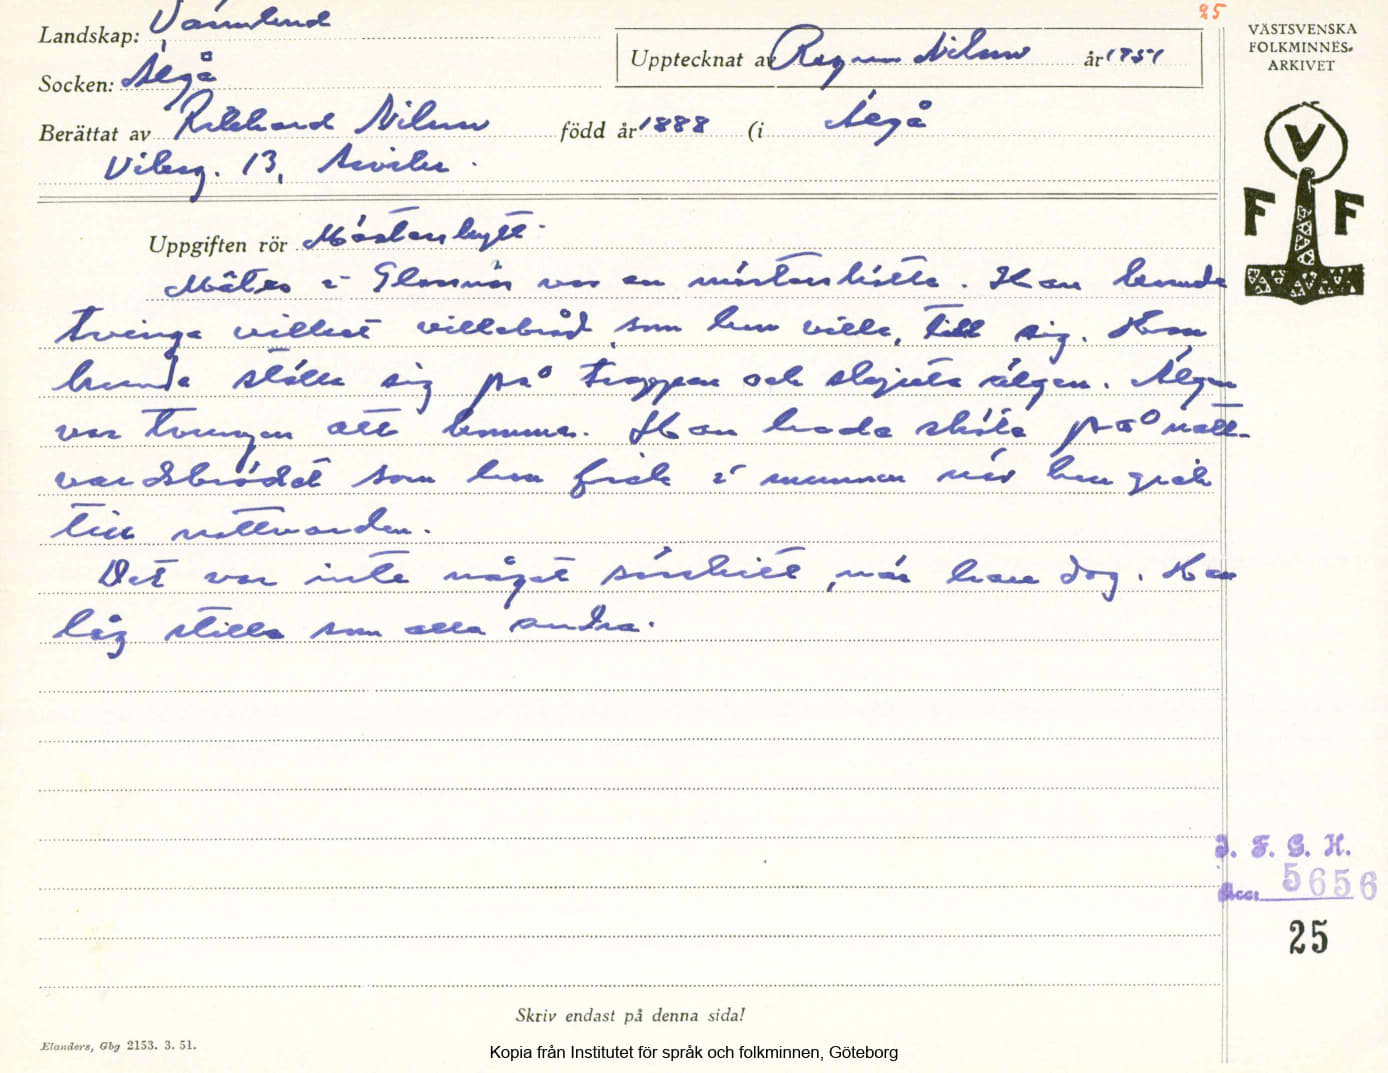 25
Landskap: Värmland
VÄSTSVENSKA
FOLKMINNES-
ARKIVET
Upptecknat av Ragnar Nilsson år 1951
Socken: Älgå
Berättat av Rikhard Nilsson född år 1888 (i Älgå
Viksg. 13, Arvika.
V
F F
Uppgiften rör Mästerskytt.
Mâtes i Glasnäs var en mästerskötte. Han kunde
tvinga vilket villebråd, som han ville, till sig. Han
kunde ställa sig på trappen och skjuta älgen. Älgen
var tvungen att komma. Han hade skôte på natt-
vardsbrödet som han fick i munnen när han gick
till nattvarden.
Det var inte något särskilt, när han dog. Han
låg stilla som alla andra.
I. F. G. H.
Acc. 5656
25
Skriv endast på denna sida!
Elanders, Gbg 2153. 3. 51.
Kopia från Institutet för språk och folkminnen, Göteborg